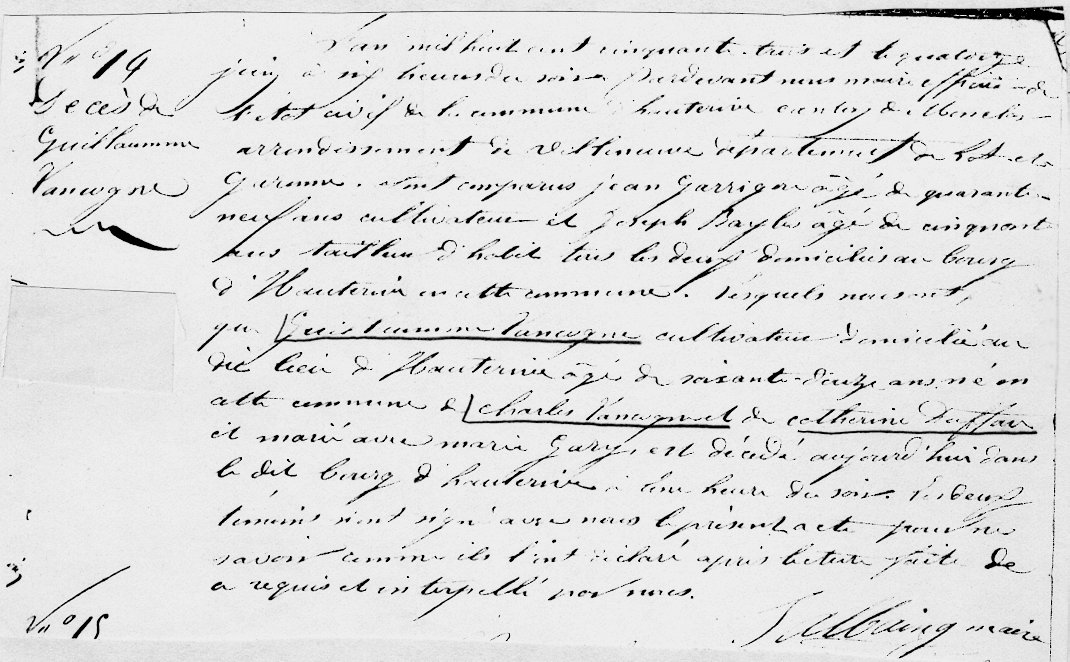 N.º 14
Decès de
Guillaumme
Vancogne
L'an mil huit cent cinquante trois et le quatorze
juin à six heures du soir pardevant nous maire officier de
l'etat civil de la commune d'hauterive canton de Monclar
arrondissement de Villeneuve département de Lot et
Garonne. sont comparus jean Garrigue âgé de quarante
neuf ans cultivateur et Joseph Bayles âgé de cinquante
ans tailleur d'habit tous les deux domiciliés au bourg
d'Hauterive en cette commune. lesquels nous ont
que Guillaumme Vancogne cultivateur domicilié au
dit lieu d'Hauterive âgé de soixante douze ans né en
cette commune de charles Vancogne et de catherine Duffau
et marié avec marie Gary, est décédé aujourd'hui dans
le dit bourg d'hauterive à une heure du soir. Les deux
témoins n'ont signé avec nous le présent acte pour ne
savoir comme ils l'ont déclaré apris lecture faite de
ce requis et interpellé par nous.
maire
N.º 15